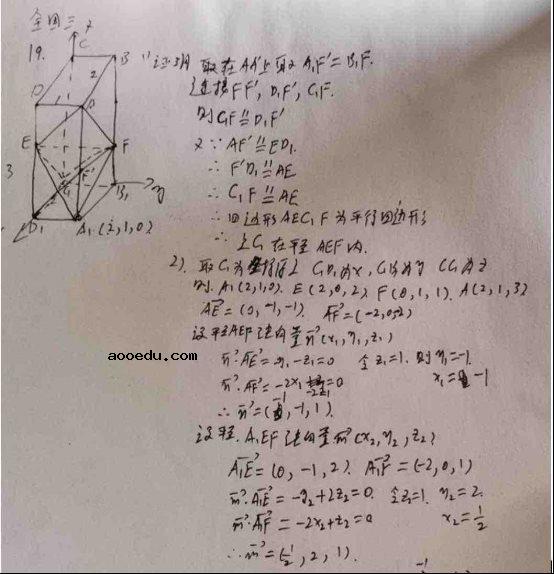 全国三
19.
1) 证明 取在AA'上取 A₁F'=B₁F.
连接 FF', D₁F', C₁F.
则 C₁F ∥= D₁F'
又∵ AF' ∥= ED₁
∴ F'D₁ ∥= AE
∴ C₁F ∥= AE
∴ 四边形AEC₁F为平行四边形
∴ C₁在平面AEF内.
2). 取C₁为坐标原点 C₁D₁为x, C₁B₁为y CC₁为z
则. A₁(2,1,0). E(2,0,2). F(0,1,1). A(2,1,3)
AE=(0,-1,-1). AF=(-2,0,-2)
设平面AEF法向量n(x₁,y₁,z₁)
n·AE=-y₁-z₁=0 令z₁=1. 则y₁=-1.
n·AF=-2x₁-2z₁=0 x₁=-1
∴ n=(-1,-1,1).
设平面A₁EF法向量m(x₂,y₂,z₂)
A₁E=(0,-1,2). A₁F=(-2,0,1)
m·A₁E=-y₂+2z₂=0. 令z₂=1, y₂=2.
m·A₁F=-2x₂+z₂=0 x₂=1/2
∴ m=(1/2,2,1).
C
B
D
A
2
E
F
F'
3
C₁
B₁
y
D₁
A₁(2,1,0)
aooedu.com